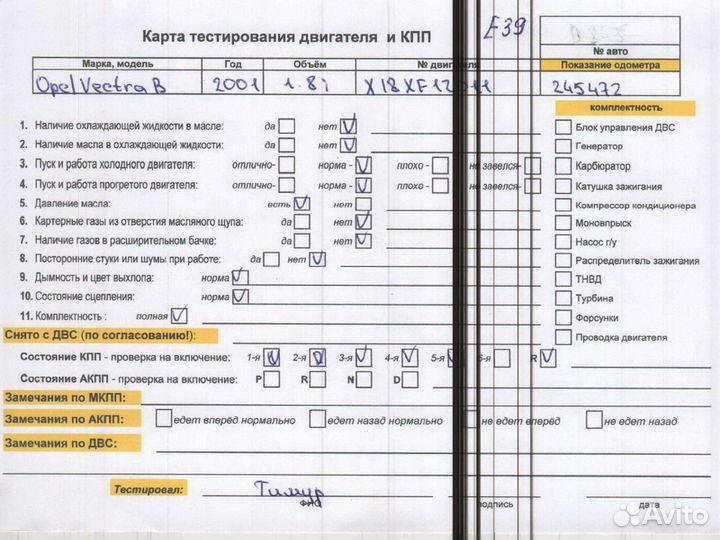 E39
Карта тестирования двигателя и КПП
№ авто
Марка, модель Год Объём № двигателя Показание одометра
Opel Vectra B 2001 1.8i X18XF12 11 245472
комплектность
1. Наличие охлаждающей жидкости в масле: да нет Блок управления ДВС
2. Наличие масла в охлаждающей жидкости: да нет Генератор
3. Пуск и работа холодного двигателя: отлично- норма - плохо - не завелся- Карбюратор
4. Пуск и работа прогретого двигателя: отлично- норма - плохо - не завелся- Катушка зажигания
5. Давление масла: есть нет Компрессор кондиционера
6. Картерные газы из отверстия масляного щупа: да нет Моновпрыск
7. Наличие газов в расширительном бачке: да нет Насос г/у
8. Посторонние стуки или шумы при работе: да нет Распределитель зажигания
9. Дымность и цвет выхлопа: норма ТНВД
10. Состояние сцепления: норма Турбина
11. Комплектность : полная Форсунки
Снято с ДВС (по согласованию!): Проводка двигателя
Состояние КПП - проверка на включение: 1-я 2-я 3-я 4-я 5-я 6-я R
Состояние АКПП - проверка на включение: P R N D
Замечания по МКПП:
Замечания по АКПП: едет вперёд нормально едет назад нормально не едет вперёд не едет назад
Замечания по ДВС:
Тестировал: Тимур
ФИО подпись дата
Avito